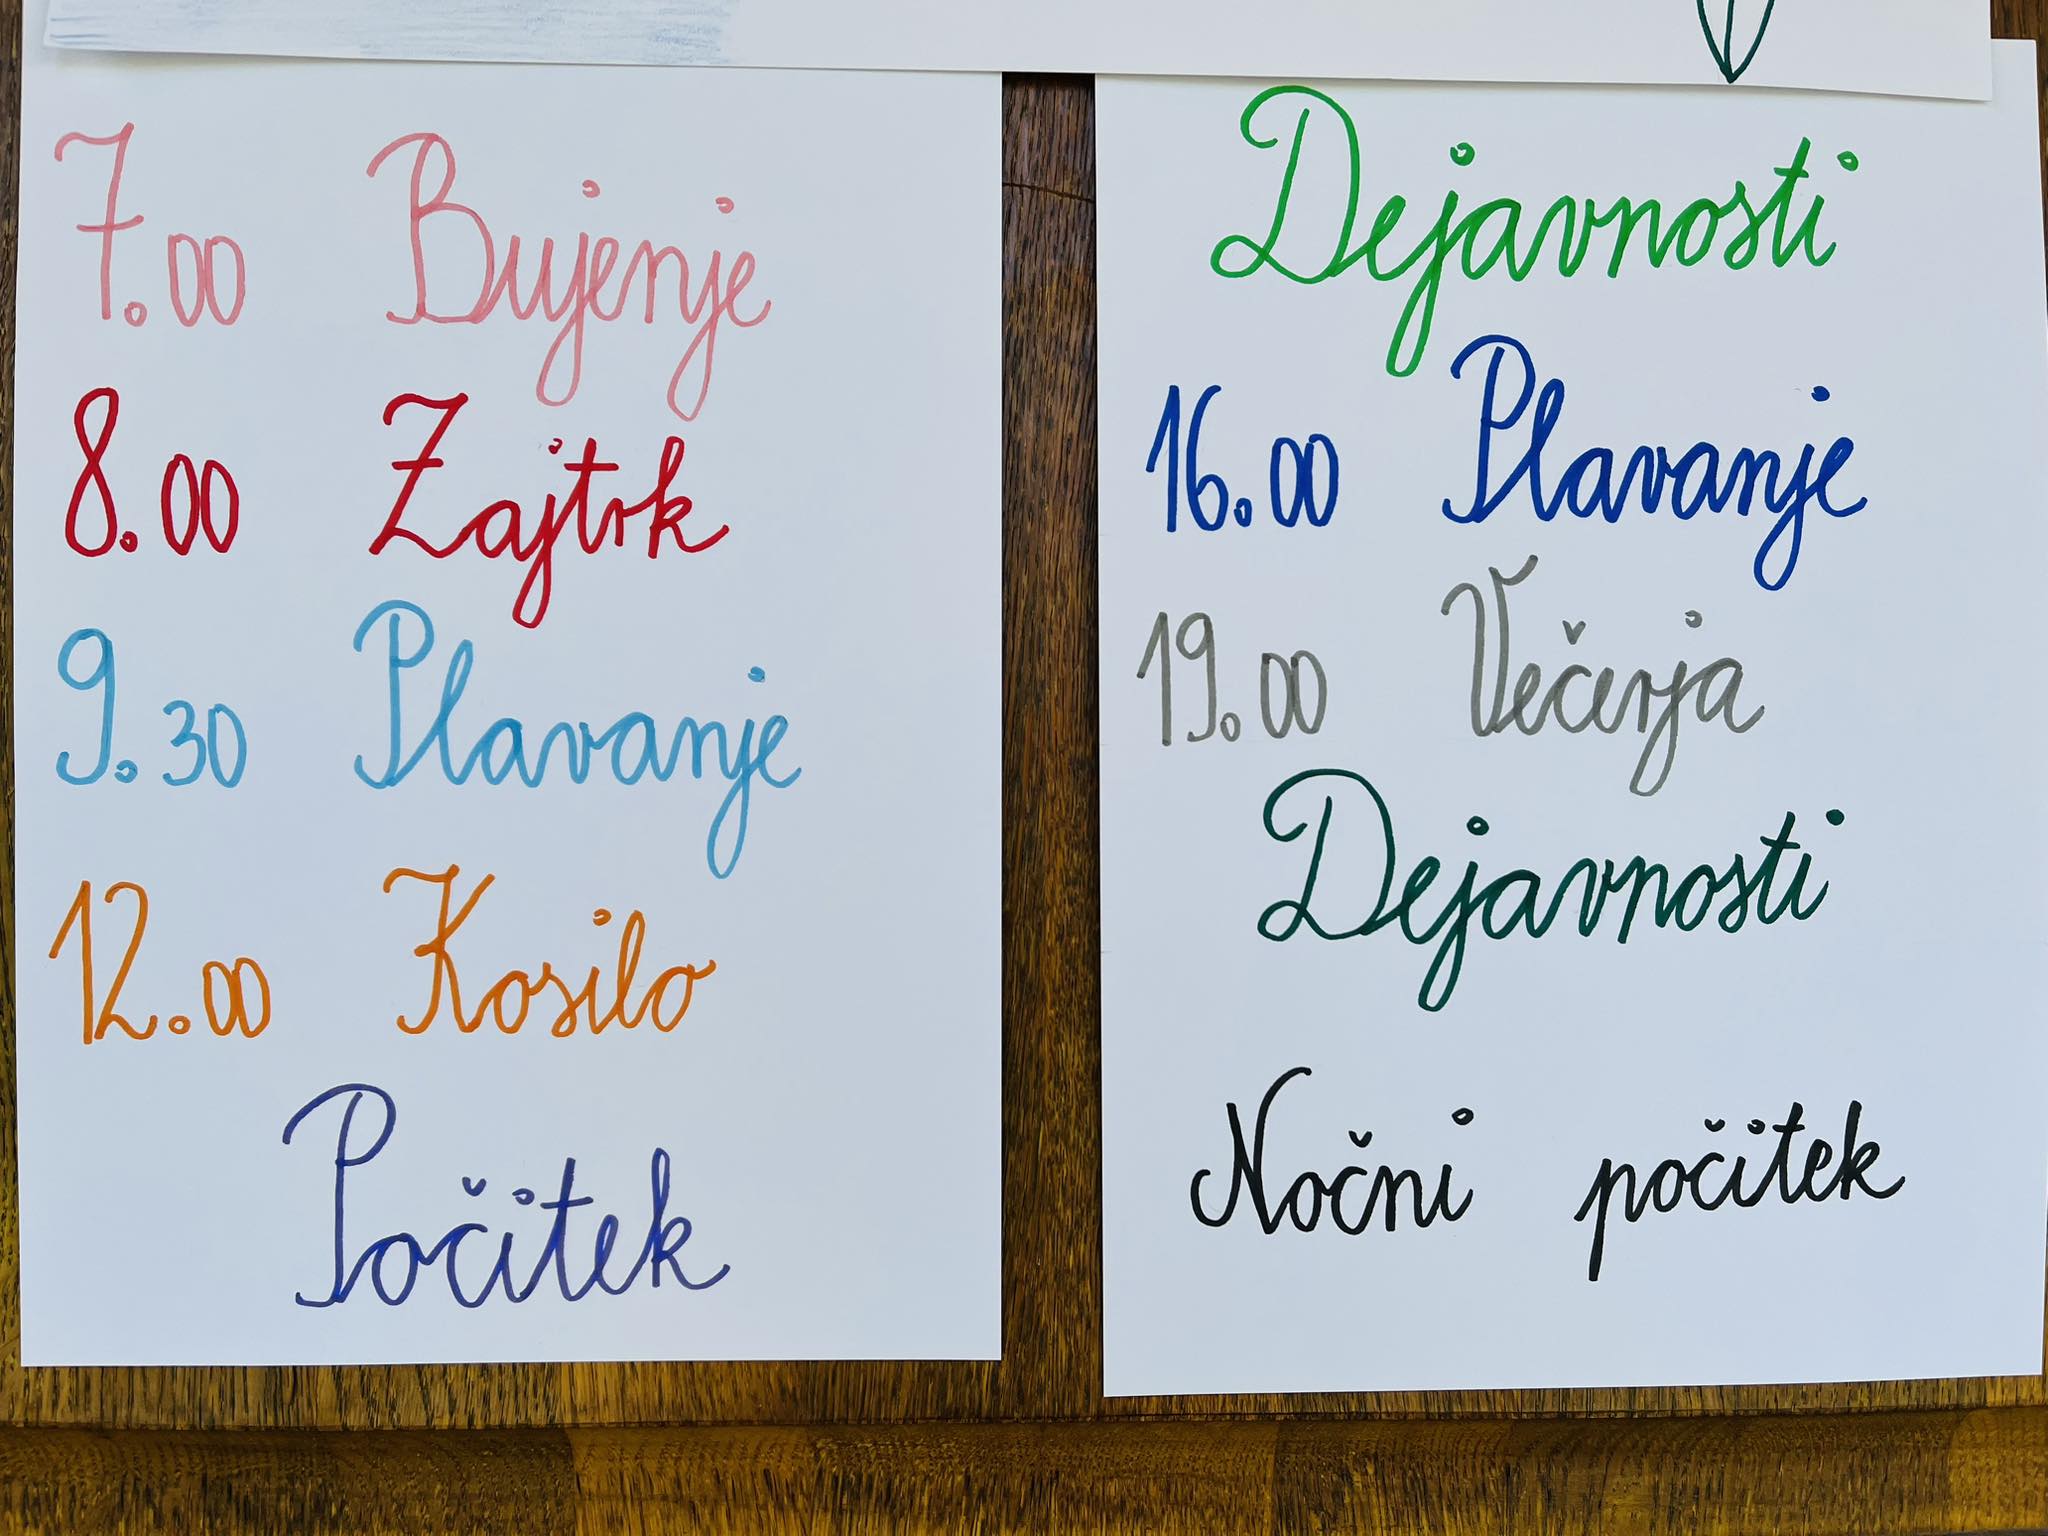 7.00 Bujenje
8.00 Zajtrk
9.30 Plavanje
12.00 Kosilo
Počitek
Dejavnosti
16.00 Plavanje
19.00 Večerja
Dejavnosti
Nočni počitek